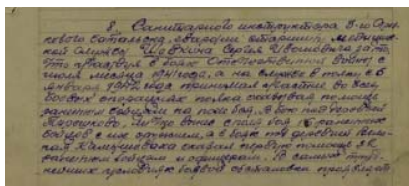 8. Санитарного инструктора 3-го Стрел
кового батальона, гвардии старшину медицин
ской службы Шавкина Сергея Ивановича за то,
что участвуя в боях Отечественной Войны с
июля месяца 1941 года, а на службе в полку с 5
января 1942 года принимал участие во всех
боевых операциях полка оказывая помощь
раненым бойцам на поле боя. В бою под деревней
вынес с поля боя 16 раненых
бойцов с их оружием, а в бою под деревней
Камушовка оказал первую помощь
раненым бойцам и офицерам. В самых труд
ных условиях боевой обстановки